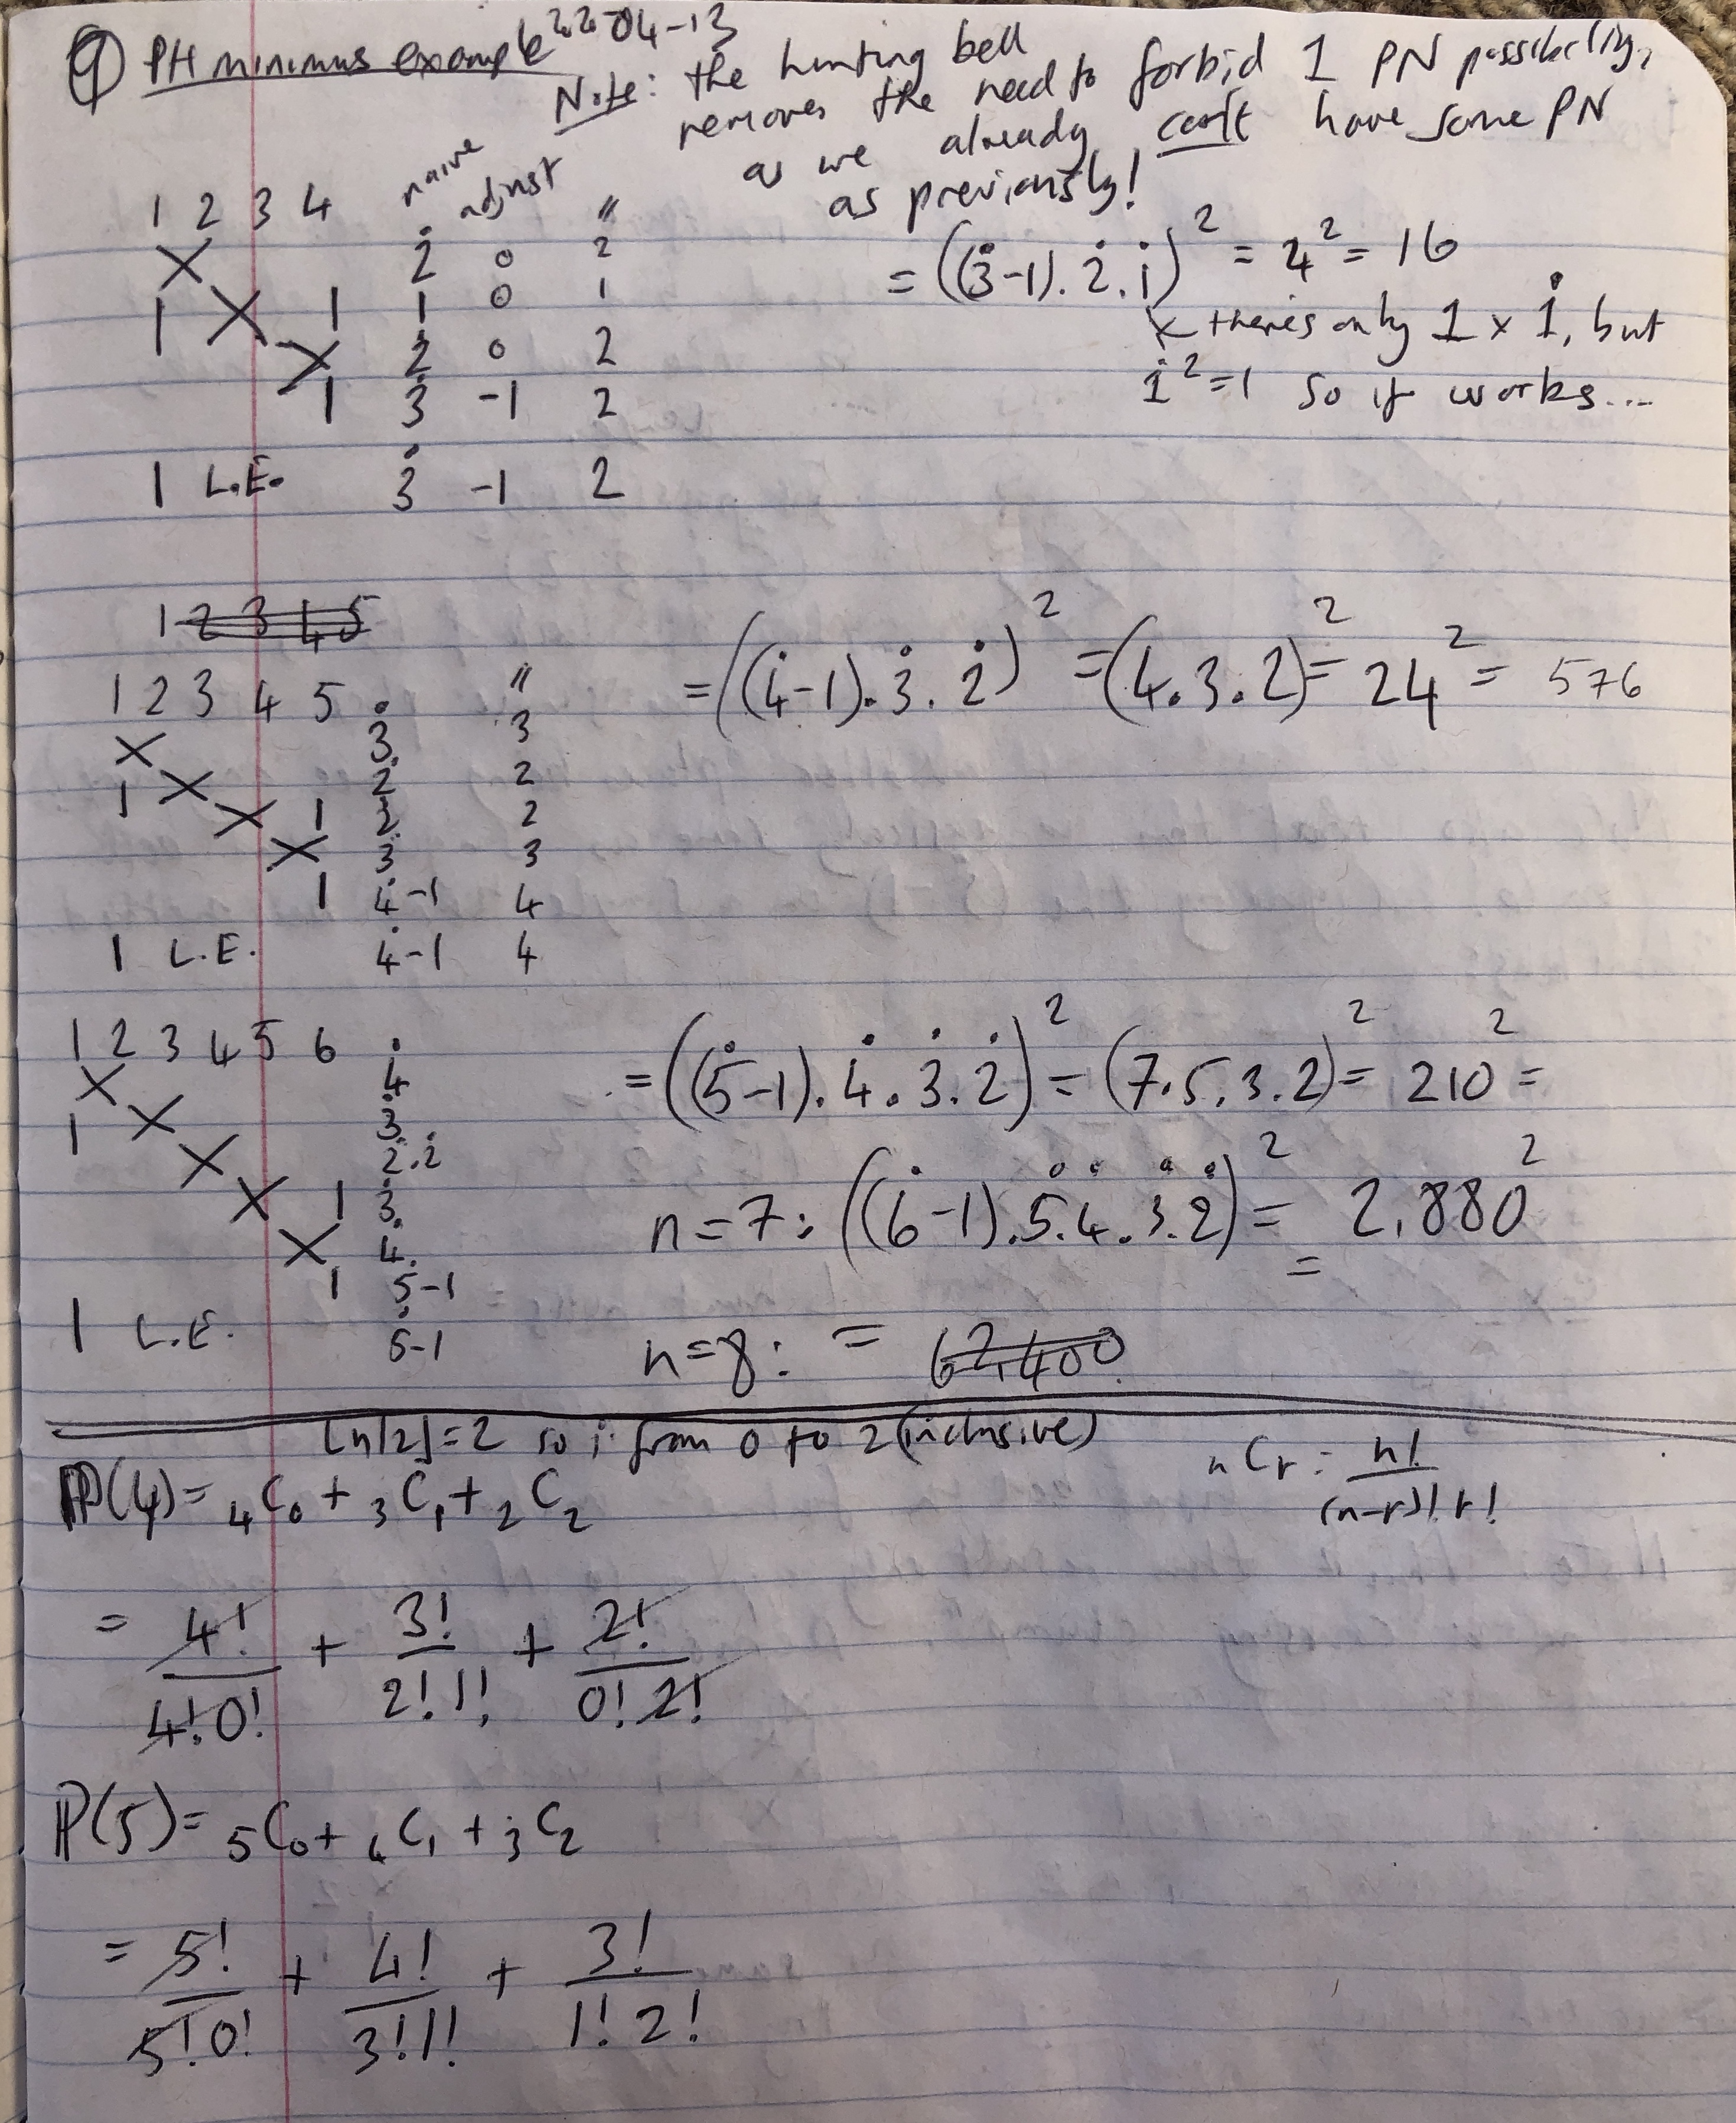 9 PH minimus example 22-04-13
Note: the hunting bell
removes the need to forbid 1 PN possibility,
as we already can't have same PN
as previously!
naive adjust "
1 2 3 4
X 2̇ 0 2
1 X 1 1̇ 0 1
X 2̇ 0 2
1 3̇ -1 2
1 L.E. 3̇ -1 2
= ((3̇-1).2̇.1̇)² = 4² = 16
there's only 1 x 1̇, but
1̇²=1 so it works...
1 2 3 4 5
1 2 3 4 5 "
X 3̇ 3
1 X 2̇ 2
X 1 2̇ 2
X 3̇ 3
1 4̇-1 4
1 L.E. 4̇-1 4
= ((4̇-1).3̇.2̇)² = (4.3.2)² = 24² = 576
1 2 3 4 5 6
X 4̇
1 X 3̇
X 2̇.2̇
X 1 3̇
X 4̇
1 5̇-1
1 L.E. 5̇-1
= ((5̇-1).4̇.3̇.2̇)² = (7.5.3.2)² = 210² =
n=7: ((6̇-1).5̇.4̇.3̇.2̇)² = 2,880²
=
n=8: = 62,400
⌊n/2⌋=2 so i from 0 to 2 (inclusive)
ℙ(4)= ₄C₀ + ₃C₁ + ₂C₂
nCr = n!/(n-r)!r!
= 4!/4!0! + 3!/2!1! + 2!/0!2!
ℙ(5)= ₅C₀ + ₄C₁ + ₃C₂
= 5!/5!0! + 4!/3!1! + 3!/1!2!